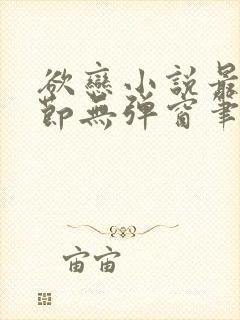 欲戀小說最
節無彈窗筆
宙宙